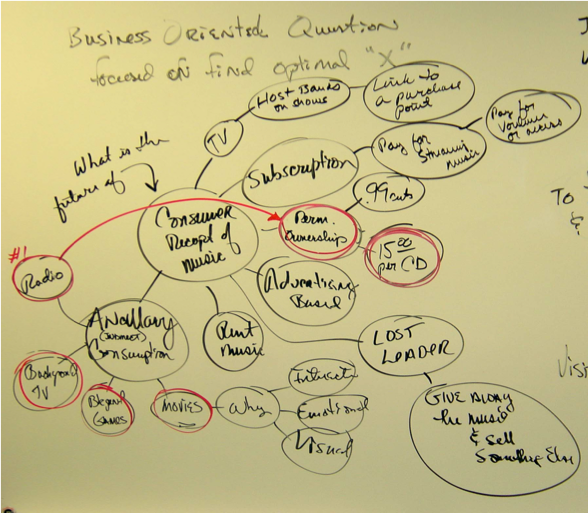 Business Oriented Question
focused on find optimal "X"
What is the
future of
TV
Host Bands
on shows
Link to
a purchase
point
Subscription
Pay for
Streaming
music
Pay for
Volume
or access
.99 cents
Consumer
Receipt of
Music
Perm.
Ownership
15.00
per CD
#1
Radio
Advertising
Based
Ancillary
(indirect)
Consumption
Rent
Music
LOST
LEADER
Background
TV
Games
Movies
Why
Emotional
Visual
GIVE Along
the music
& sell
Something Else
TO
&
Visi